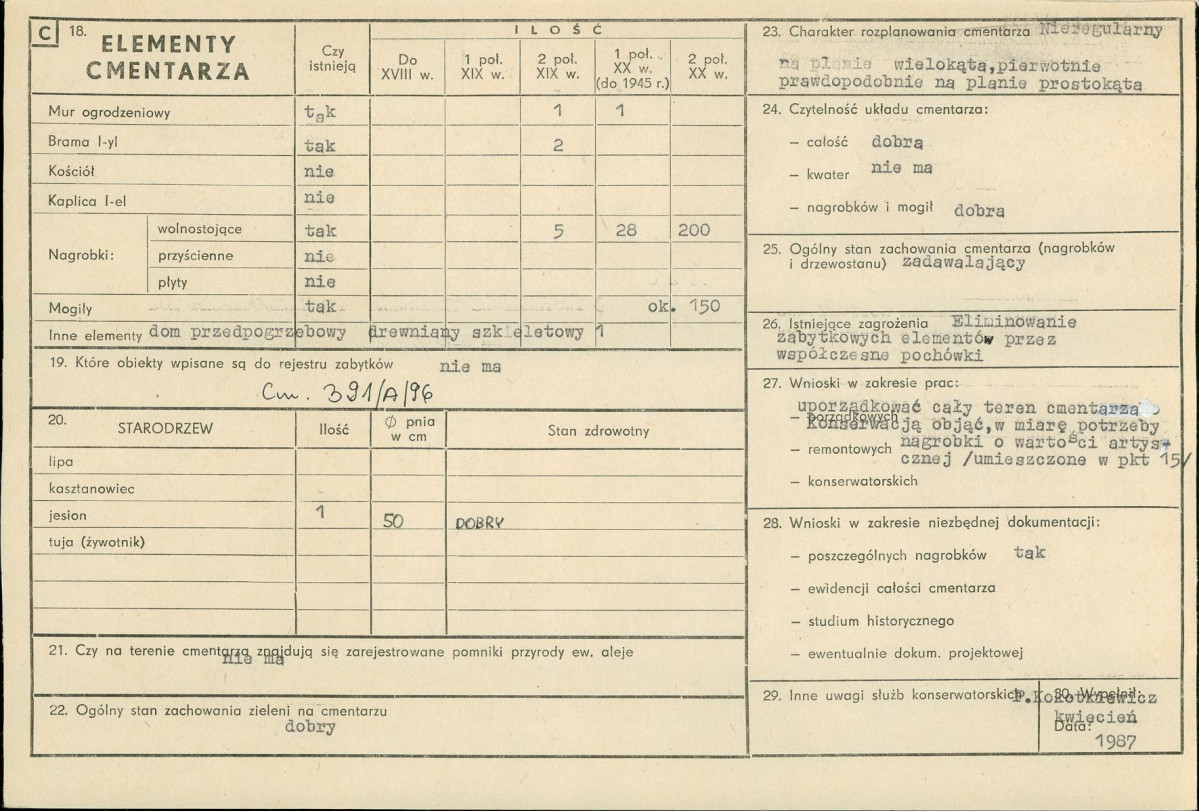 C 18. ELEMENTY CMENTARZA
Czy istnieją
ILOŚĆ
Do XVIII w.
1 poł. XIX w.
2 poł. XIX w.
1 poł. XX w. (do 1945 r.)
2 poł. XX w.
Mur ogrodzeniowy tak 1 1
Brama I-yl tak 2
Kościół nie
Kaplica I-el nie
Nagrobki:
wolnostojące tak 5 28 200
przyścienne nie
płyty nie
Mogiły tak ok. 150
Inne elementy dom przedpogrzebowy drewniany szkieletowy 1
19. Które obiekty wpisane są do rejestru zabytków nie ma
Cm. 391/A/96
20. STARODRZEW Ilość Ø pnia w cm Stan zdrowotny
lipa
kasztanowiec
jesion 1 50 DOBRY
tuja (żywotnik)
21. Czy na terenie cmentarza znajdują się zarejestrowane pomniki przyrody ew. aleje
nie ma
22. Ogólny stan zachowania zieleni na cmentarzu
dobry
23. Charakter rozplanowania cmentarza Nieregularny
na planie wielokąta,pierwotnie
prawdopodobnie na planie prostokąta
24. Czytelność układu cmentarza:
— całość dobra
— kwater nie ma
— nagrobków i mogił dobra
25. Ogólny stan zachowania cmentarza (nagrobków
i drzewostanu) zadawalający
26. Istniejące zagrożenia Eliminowanie
zabytkowych elementów przez
współczesne pochówki
27. Wnioski w zakresie prac:
uporządkować cały teren cmentarza
— porządkowych
Konserwacją objąć,w miarę potrzeby
— remontowych nagrobki o wartości artys-
cznej /umieszczone w pkt 15/
— konserwatorskich
28. Wnioski w zakresie niezbędnej dokumentacji:
— poszczególnych nagrobków tak
— ewidencji całości cmentarza
— studium historycznego
— ewentualnie dokum. projektowej
29. Inne uwagi służb konserwatorskich
30. Wypełnił:
P.Kokotkiewicz
kwiecień
Data:
1987